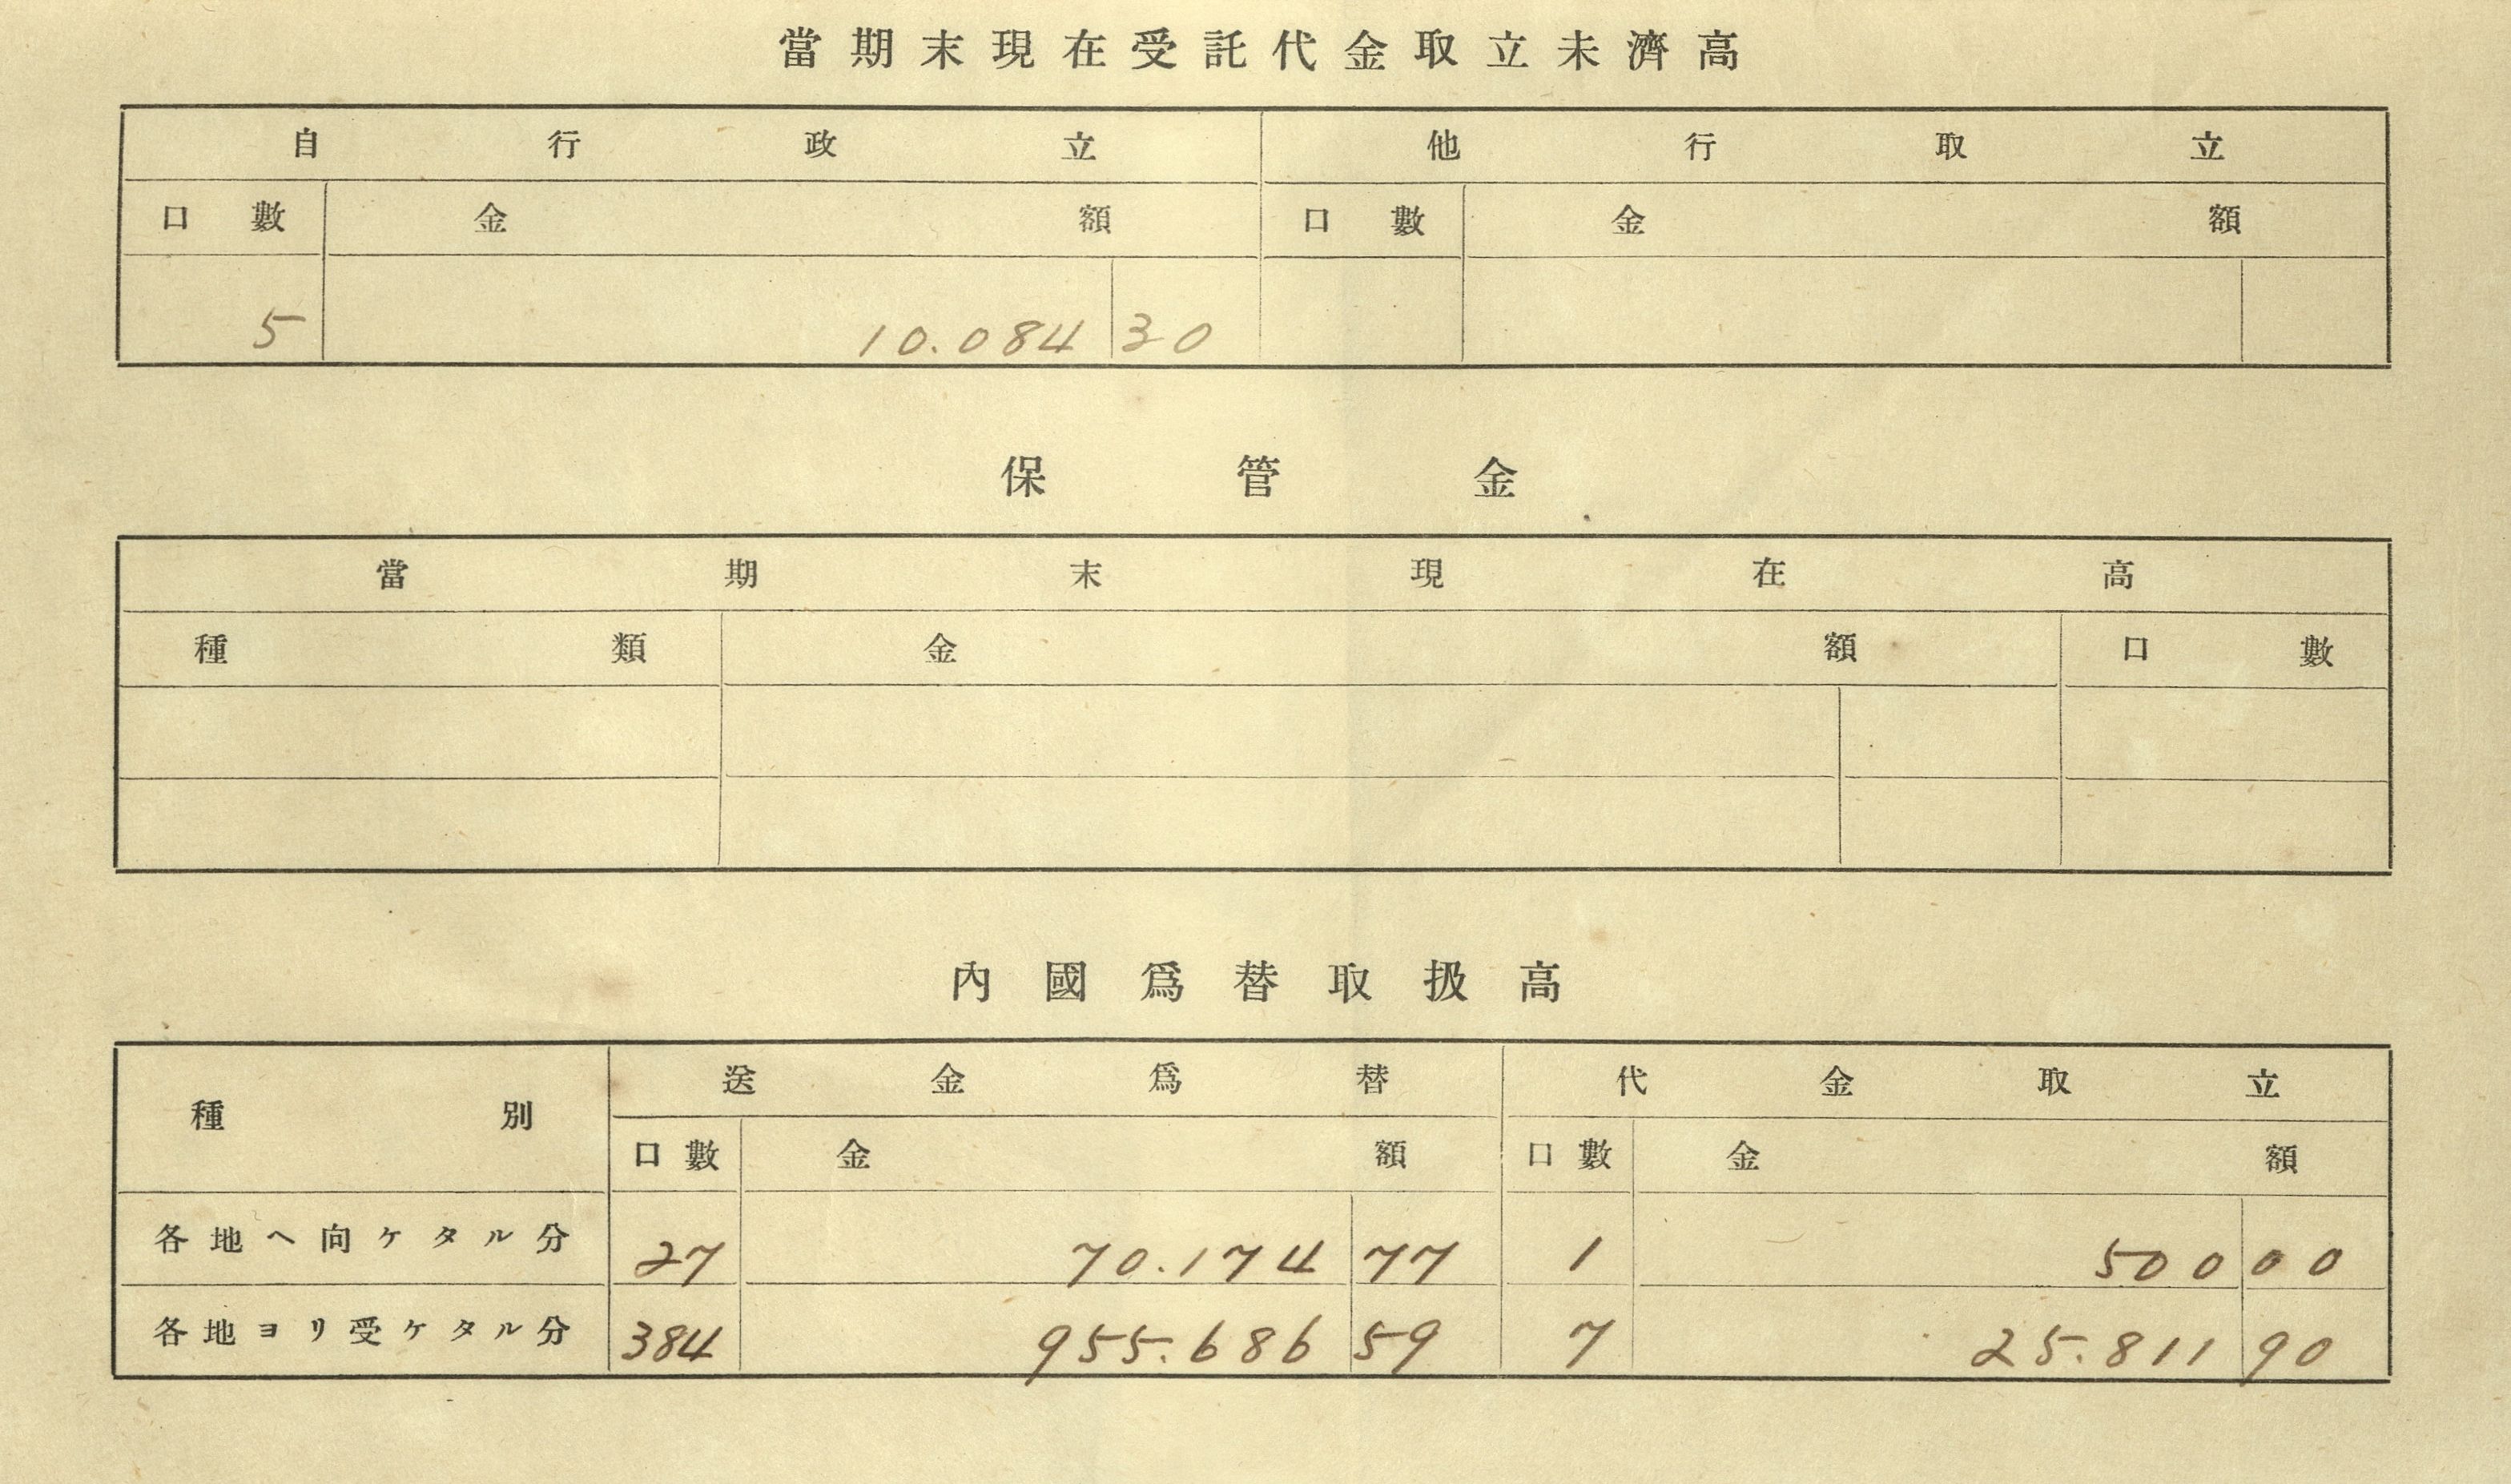 當期末現在受託代金取立未濟高
自行政立 他行取立
口數 金額 口數 金額
5 10.084 30
保管金
當期末現在高
種類 金額 口數
內國爲替取扱高
種別 送金爲替 代金取立
口數 金額 口數 金額
各地ヘ向ケタル分 27 70.174 77 1 500 00
各地ヨリ受ケタル分 384 955.686 59 7 25.811 90